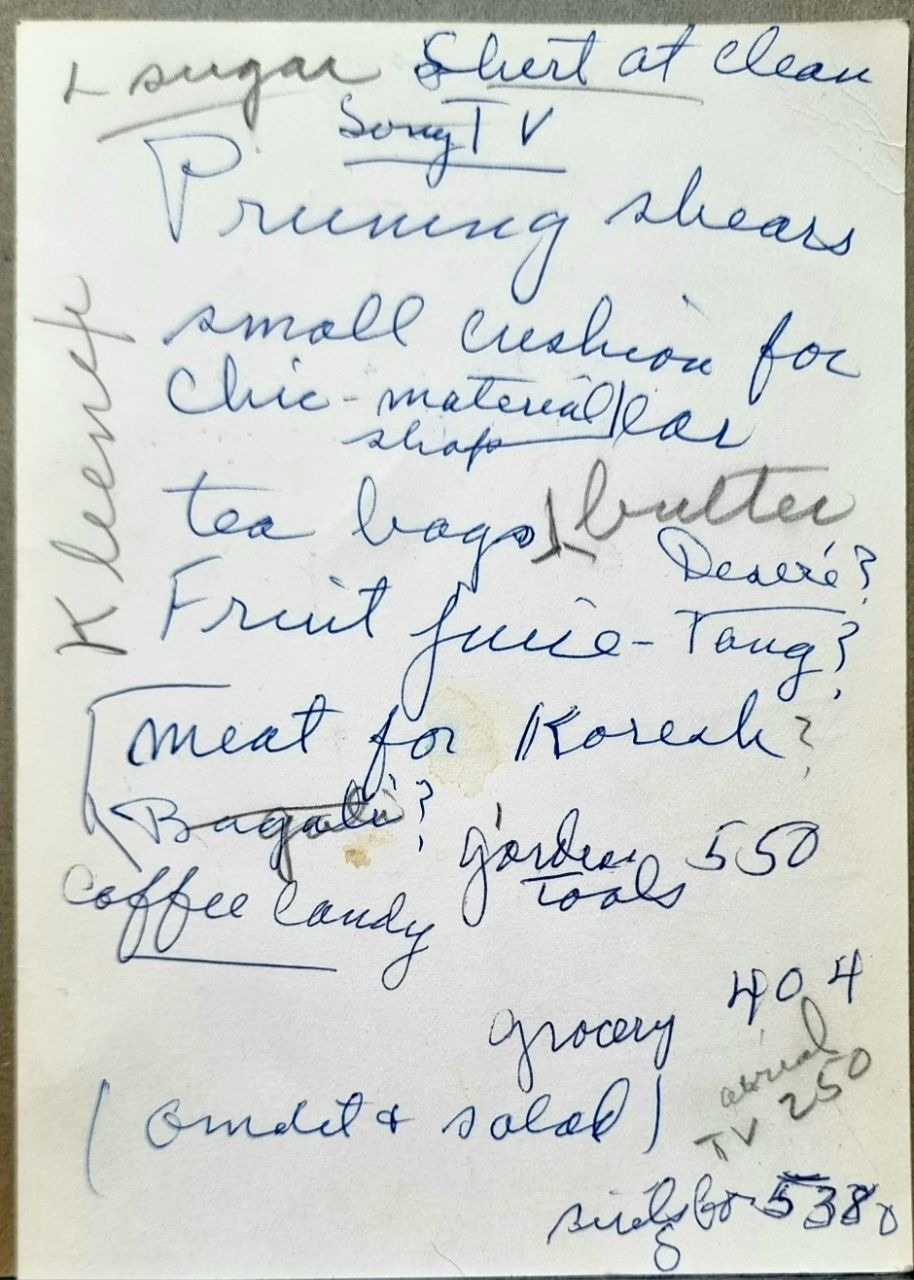 sugar Shirt at clean
Sony TV
Pruning shears
small cushion for
Chic - material
shop
car
Kleenex
tea bags butter
Deseré?
Fruit juice - Tang?
meat for Koresh?
Bagali?
garden
tools 550
coffee candy
grocery 404
aerial
TV 250
(omelet + salad)
538